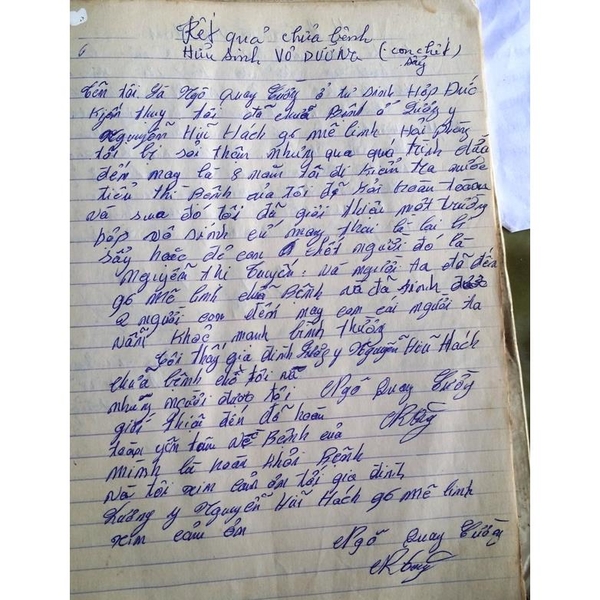 Kết quả chữa bệnh
6
Hữu sinh VÔ DƯỠNG (con chết)
sảy
Tên tôi là Ngô Quay Cường ở tư sinh Hợp Đức
Kiến thuy tôi đã chữa Bệnh ở Lương y
Nguyễn Hữu Hách 96 mê linh Hải Phòng
tôi bị sỏi thận nhưng qua quá trình đầu
đến nay là 8 năm tôi đi kiểm tra nước
tiểu thì Bệnh của tôi đã hoan toaan
và sau đó tôi đã giới thiêu một trường
hợp vô sinh cứ mang thai là lại bị
sẩy hoặc đẻ con chết người đó là
Nguyễn Thi Tuyến. và người ta đã đến
96 mê linh chữa Bệnh và đã sinh được
2 người con đến nay con cái người ta
vẫn khỏe manh bình thường
Tôi thấy gia đình Lương y Nguyễn Hữu Hách
chữa bênh chỗ tôi và
những người được tôi
Ngô Quay Cường
giới thiệu đến đã hoan
toàn yên tâm về Bệnh của
mình là hoàn khỏi Bệnh
và tôi xin cam ơn tới gia đình
Lương y Nguyễn Hữu Hách 96 mê linh
xin cảm ơn
Ngô Quay Cường